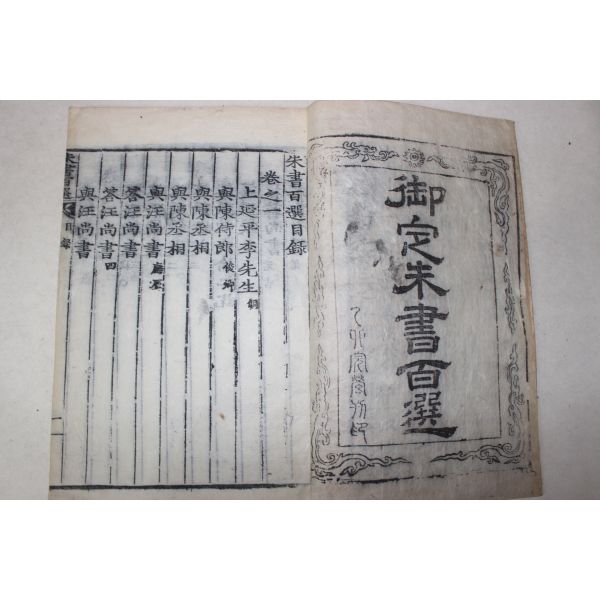 御定朱書百選
乙卯完營刊印
朱書百選目錄
卷之一
上延平李先生侗
與陳侍郎俊卿
與陳丞相
與陳丞相
與汪尚書應辰
答汪尚書
答汪尚書四
與汪尚書
朱書百選 目錄 一